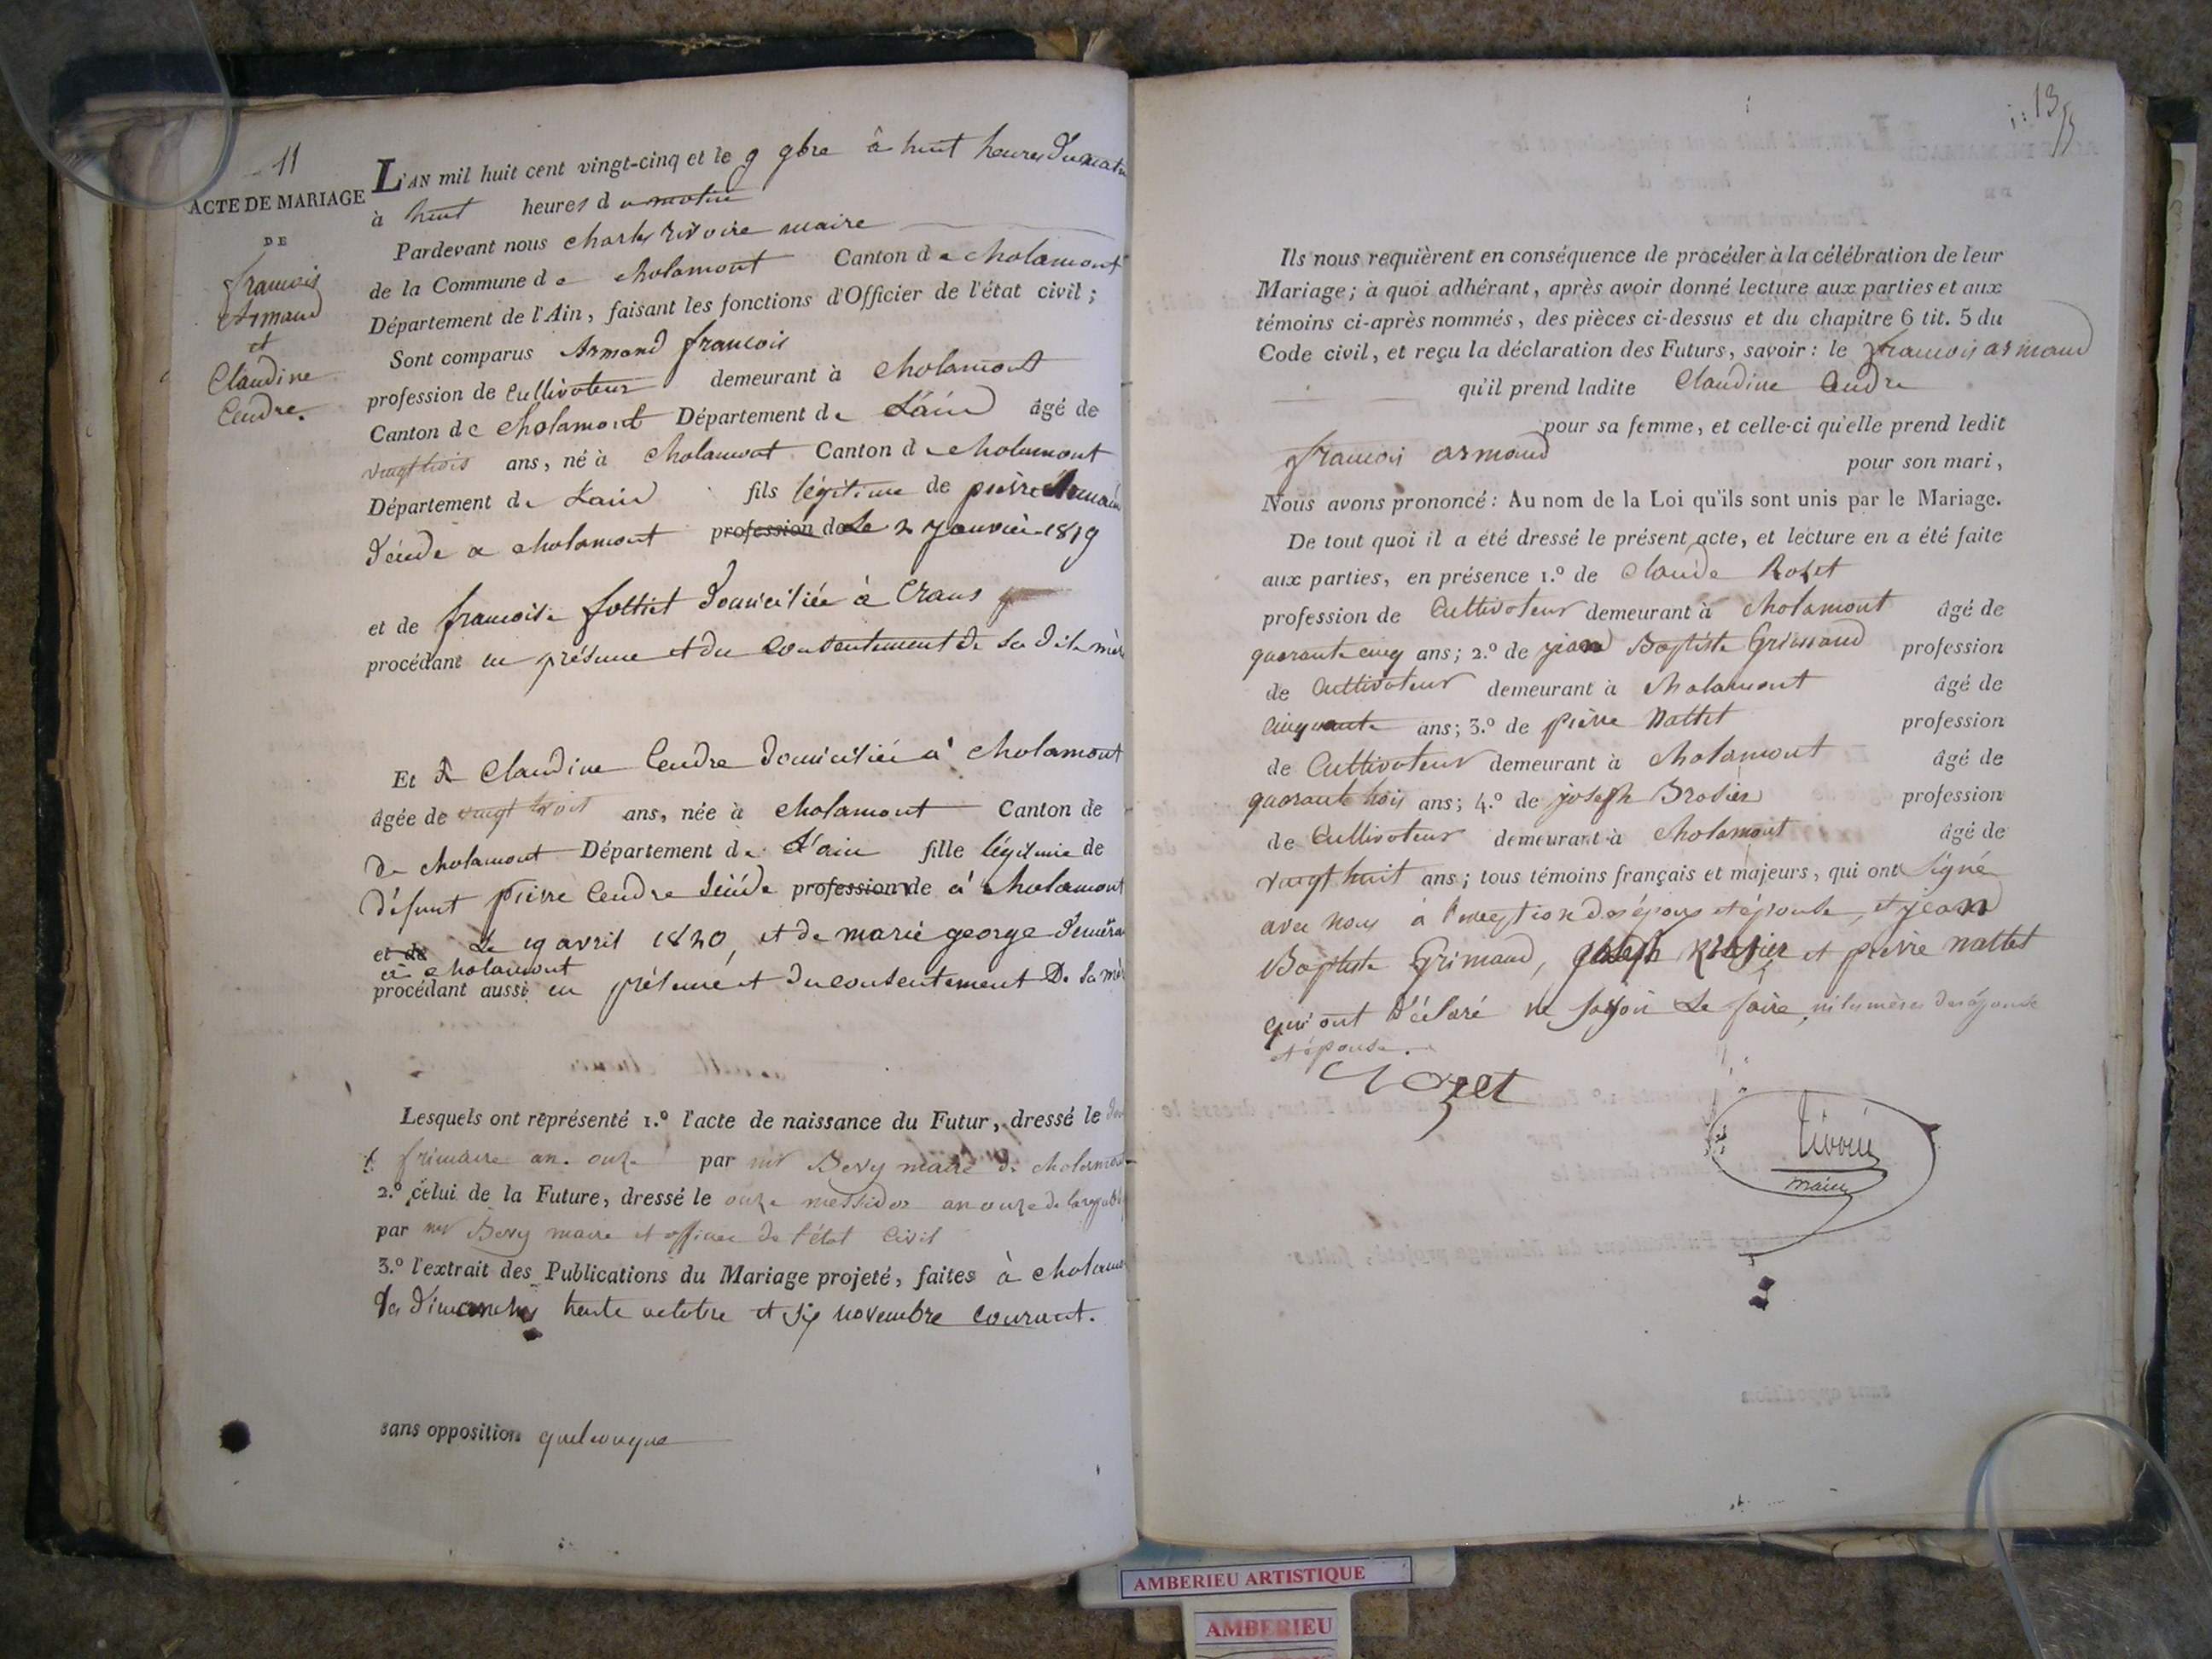 11
ACTE DE MARIAGE
DE
francois
Armand
et
Claudine
Cendre.
L'AN mil huit cent vingt-cinq et le 9 9bre à huit heures du matin
à huit heures du matin
Pardevant nous charles rivoire maire
de la Commune de cholamont Canton de cholamont
Département de l'Ain, faisant les fonctions d'Officier de l'état civil;
Sont comparus Armand francois
profession de Cultivateur demeurant à cholamont
Canton de cholamont Département de L'ain âgé de
vingt trois ans, né à cholamont Canton de cholamont
Département de L'ain fils légitime de pierre Armand
décédé a cholamont profession de Le 2 Janvier 1819
et de francoise domiciliée à Crans
procédant en présence et du consentement de sa dite mère
Et de Claudine Cendre domiciliée a cholamont
âgée de vingt trois ans, née à cholamont Canton de
de cholamont Département de L'ain fille légitime de
défunt pierre Cendre décédé profession de a cholamont
et de Le 19 avril 1820, et de marie george
a cholamont
procédant aussi en présence et du consentement de sa mère
Lesquels ont représenté 1.º l'acte de naissance du Futur, dressé le
frimaire an onze par mr Bevy maire de cholamont
2.º celui de la Future, dressé le onze messidor an onze de
par mr Bevy maire et officier de l'état Civil
3.º l'extrait des Publications du Mariage projeté, faites à cholamont
dimanches trente octobre et six novembre courant.
sans opposition quelconque
13
Ils nous requièrent en conséquence de procéder à la célébration de leur
Mariage; à quoi adhérant, après avoir donné lecture aux parties et aux
témoins ci-après nommés, des pièces ci-dessus et du chapitre 6 tit. 5 du
Code civil, et reçu la déclaration des Futurs, savoir: le francois armand
qu'il prend ladite Claudine Cendre
pour sa femme, et celle-ci qu'elle prend ledit
francois armand pour son mari,
Nous avons prononcé: Au nom de la Loi qu'ils sont unis par le Mariage.
De tout quoi il a été dressé le présent acte, et lecture en a été faite
aux parties, en présence 1.º de claude Rozet
profession de Cultivateur demeurant à cholamont âgé de
quarante cinq ans; 2.º de jean Baptiste profession
de Cultivateur demeurant à cholamont âgé de
cinquante ans; 3.º de pierre Nattet profession
de Cultivateur demeurant à cholamont âgé de
quarante trois ans; 4.º de joseph Brosier profession
de Cultivateur demeurant à cholamont âgé de
vingt huit ans; tous témoins français et majeurs, qui ont signé
avec nous à l'exception des époux et épouse, et jean
Baptiste Grimaud, joseph et pierre nattet
qui ont déclaré ne savoir le faire, ni les mères des époux
et épouse.
Rozet
rivoire
maire
AMBERIEU ARTISTIQUE
AMBERIEU